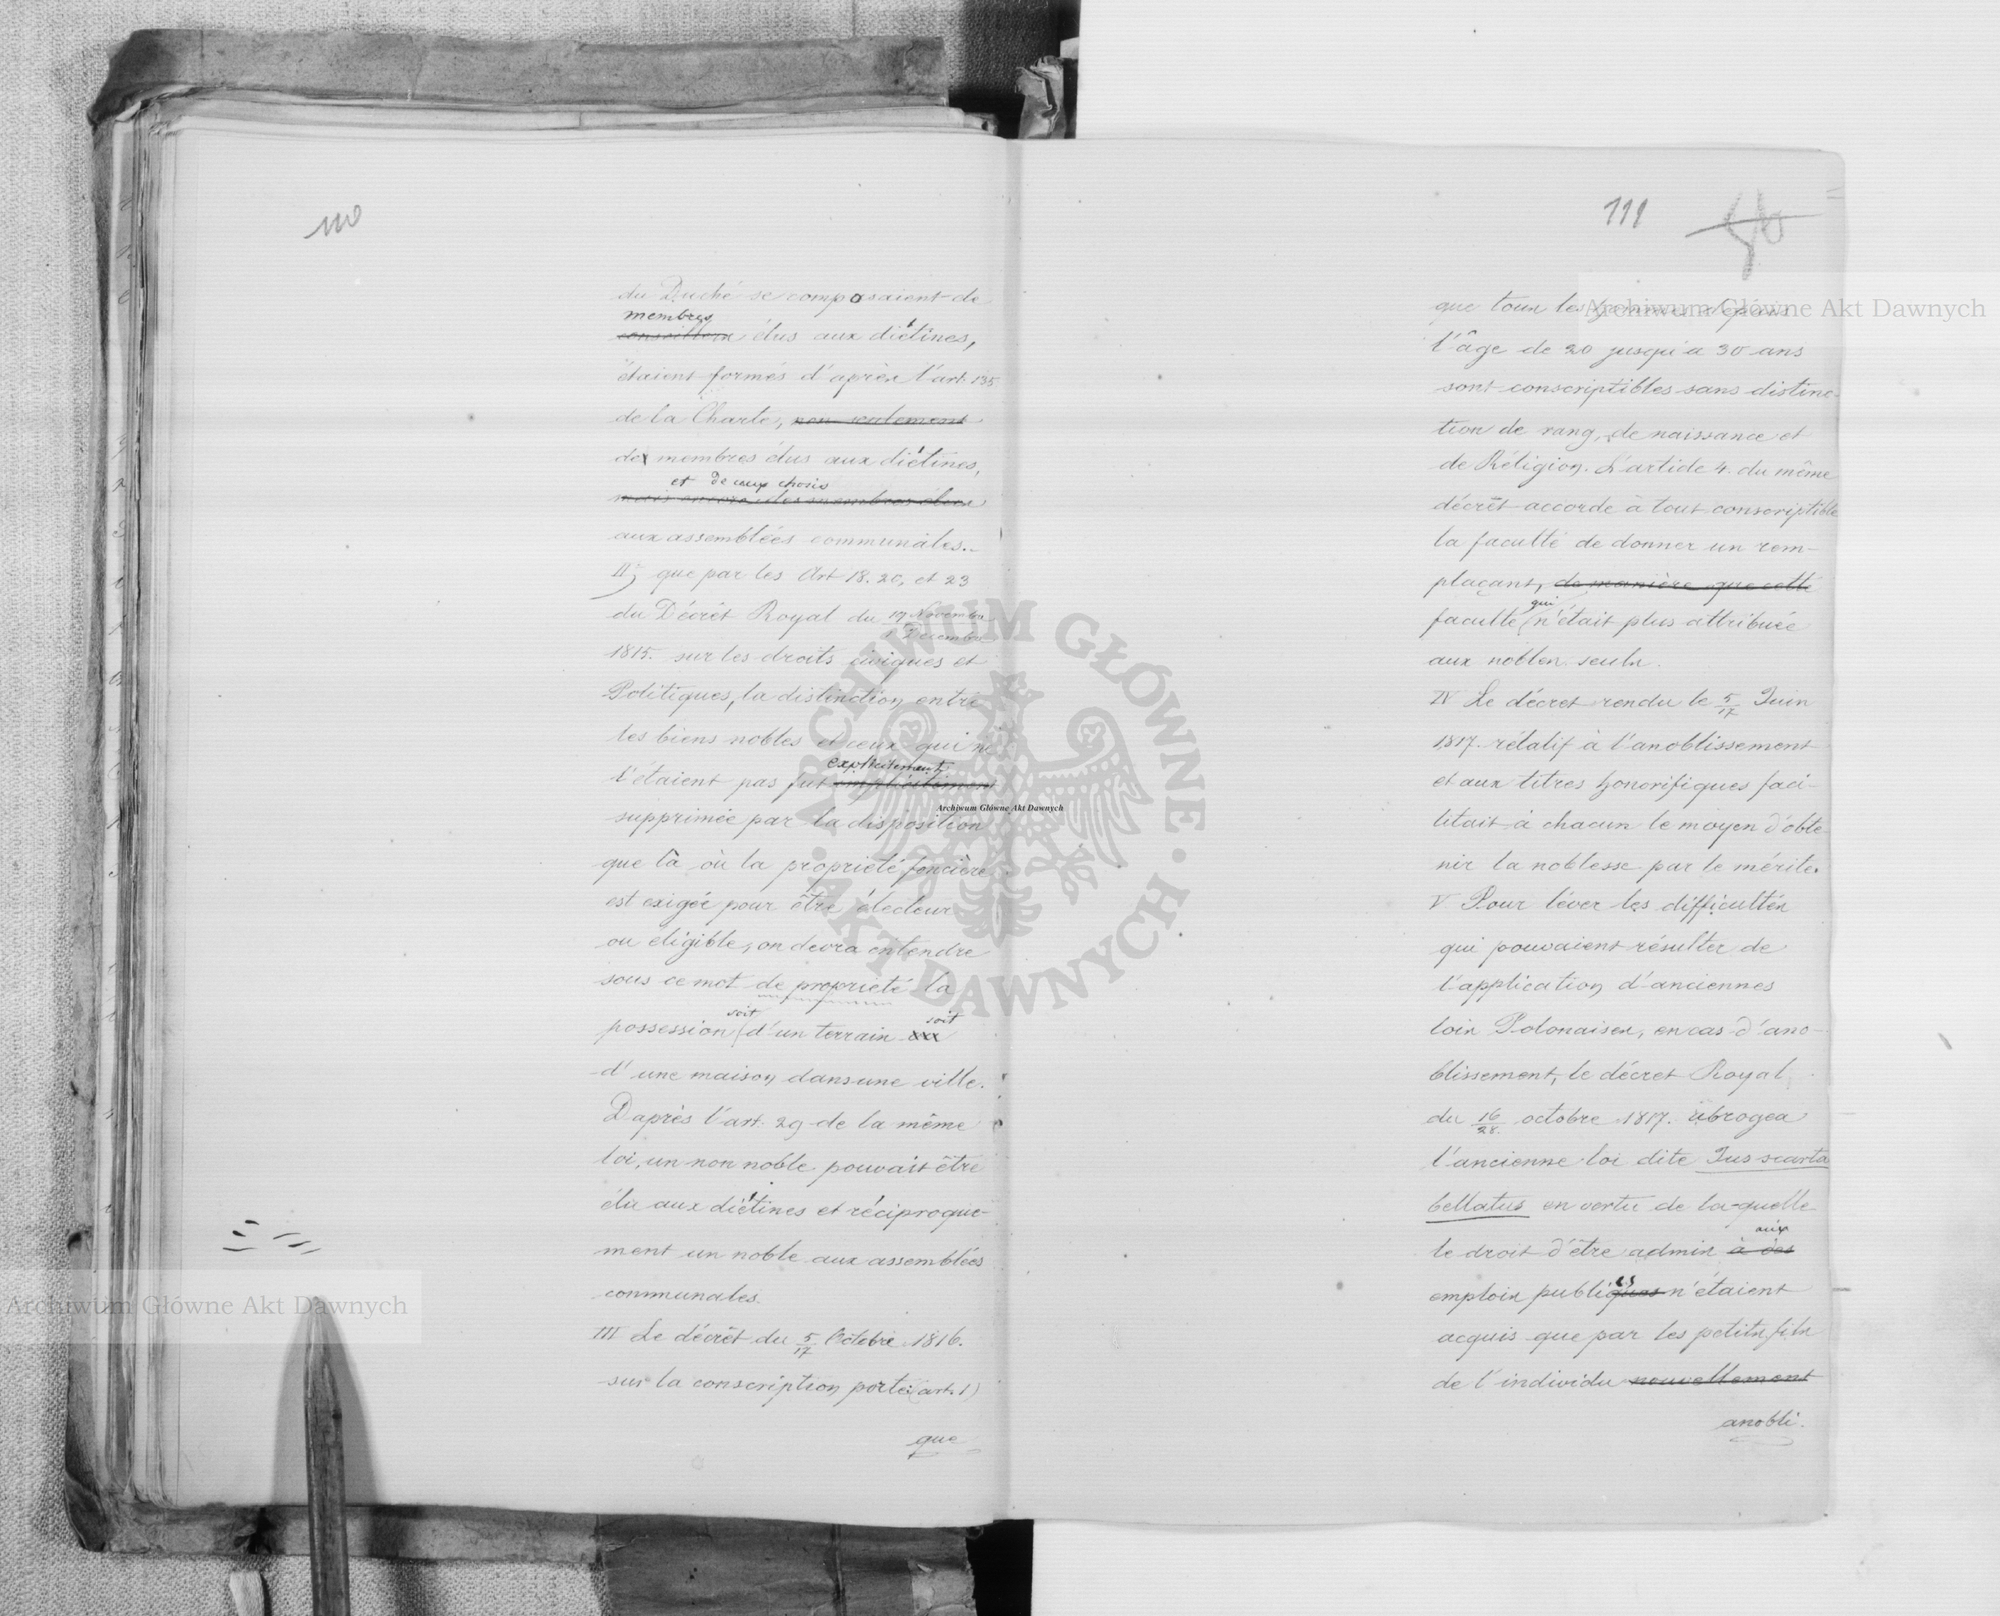 110
du Duché se composaient de
membres
conseillers élus aux diétines,
étaient formés d'après l'art. 135
de la Charte, non seulement
des membres élus aux diétines,
et de ceux choisis
mais encore des membres élus
aux assemblées communales.
II, que par les Art 18. 20, et 23
du Décrét Royal du 19 Novembre
1 Décembre
1815. sur les droits civiques et
Politiques, la distinction entre
les biens nobles et ceux qui ne
explicitement
l'étaient pas fut implicitement
supprimée par la disposition
que là où la proprieté foncière
est exigée pour être électeur
ou éligible, on devra entendre
sous ce mot de proprieté la
soit soit
possession d'un terrain
d'une maison dans une ville.
Daprès l'art. 29 de la même
loi, un non noble pouvait être
élu aux diétines et réciproque-
ment un noble aux assemblées
communales.
III Le décrét du 5/17 Octobre 1816.
sur la conscription porte (art. 1)
que
111
que tous les hommes depuis
l'âge de 20 jusqu'a 30 ans
sont conscriptibles sans distinc-
tion de rang, de naissance et
de Réligion. L'article 4. du même
décrét accorde à tout conscriptible
la faculté de donner un rem-
plaçant, de manière que cette
qui
faculté n'était plus attribuée
aux nobles seuls.
IV Le décret rendu le 5/17 Juin
1817. rélatif à l'anoblissement
et aux titres honorifiques faci-
litait à chacun le moyen d'obte-
nir la noblesse par le mérite.
V Pour léver les difficultés
qui pouvaient résulter de
l'application d'anciennes
lois Polonaises, en cas d'ano-
blissement, le décret Royal
du 16/28. octobre 1817. abrogea
l'ancienne loi dite Jus scarta
bellatus en vertu de la-quelle
aux
le droit d'être admis à des
emplois publiques n'étaient
acquis que par les petits fils
de l'individu nouvellement
anobli.
Archiwum Główne Akt Dawnych
Archiwum Główne Akt Dawnych
Archiwum Główne Akt Dawnych
ARCHIWUM GŁÓWNE · AKT DAWNYCH ·